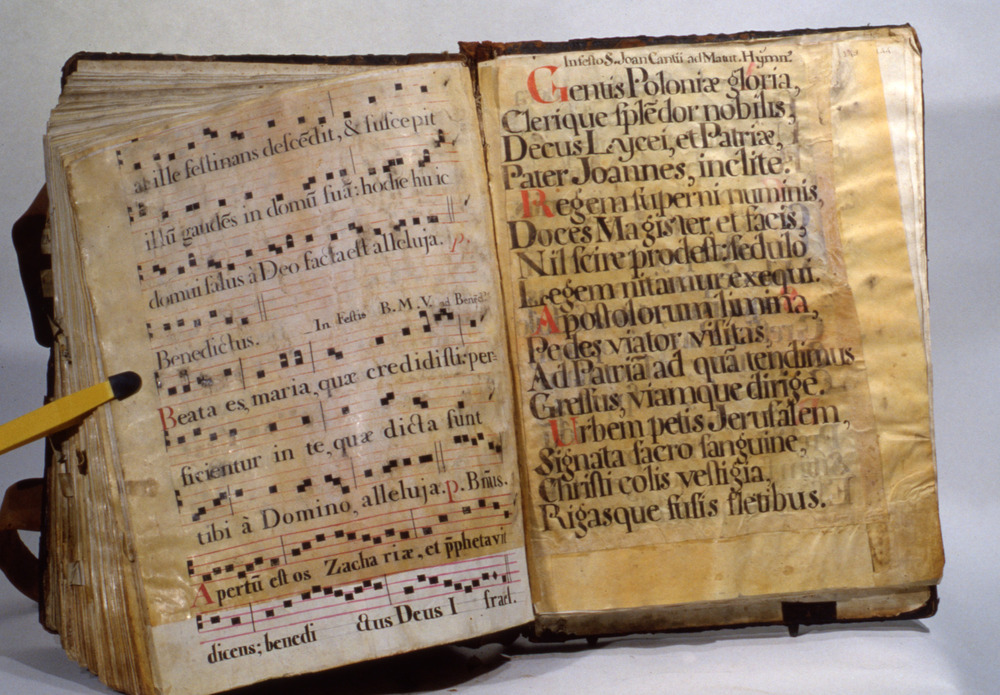 at ille festinans descēdit, & suscepit
illū gaudēs in domū suā: hodie huic
domui salus à Deo facta est alleluja. p.
In Festo B. M. V. ad Bened.
Benedictus.
Beata es, maria, quæ credidisti: per-
ficientur in te, quæ dicta sunt
tibi à Domino, alleluja. p. Bn̄us.
Apertū est os Zachariæ, et p̄phetavit
dicens; benedictus Deus Israel.
In festo S. Joan Cantii ad Matut. Hymn.
Gentis Poloniæ gloria,
Clerique splēdor nobilis,
Decus Lycei, et Patriæ,
Pater Joannes, inclite.
Regem superni numinis,
Doces Magister, et facis,
Nil scire prodest: sedulo
Legem nitamur exequi.
Apostolorum limina,
Pedes viator visitas,
Ad Patriā ad quā tendimus
Gressus, viamque dirige.
Urbem petis Jerusalem,
Signata sacro sanguine,
Christi colis vestigia,
Rigasque fusis fletibus.